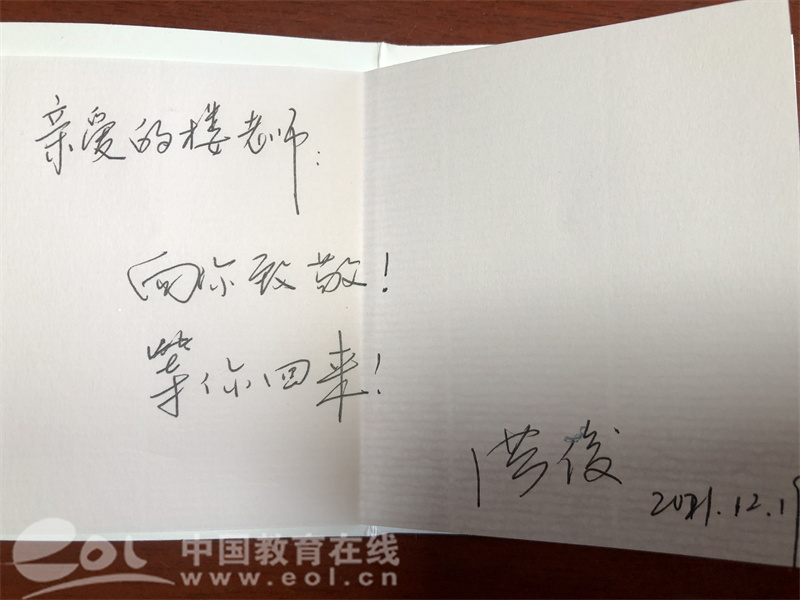 亲爱的楼老师:
向你致敬!
等你回来!
洪俊
2021.12.19
eol 中国教育在线
www.eol.cn